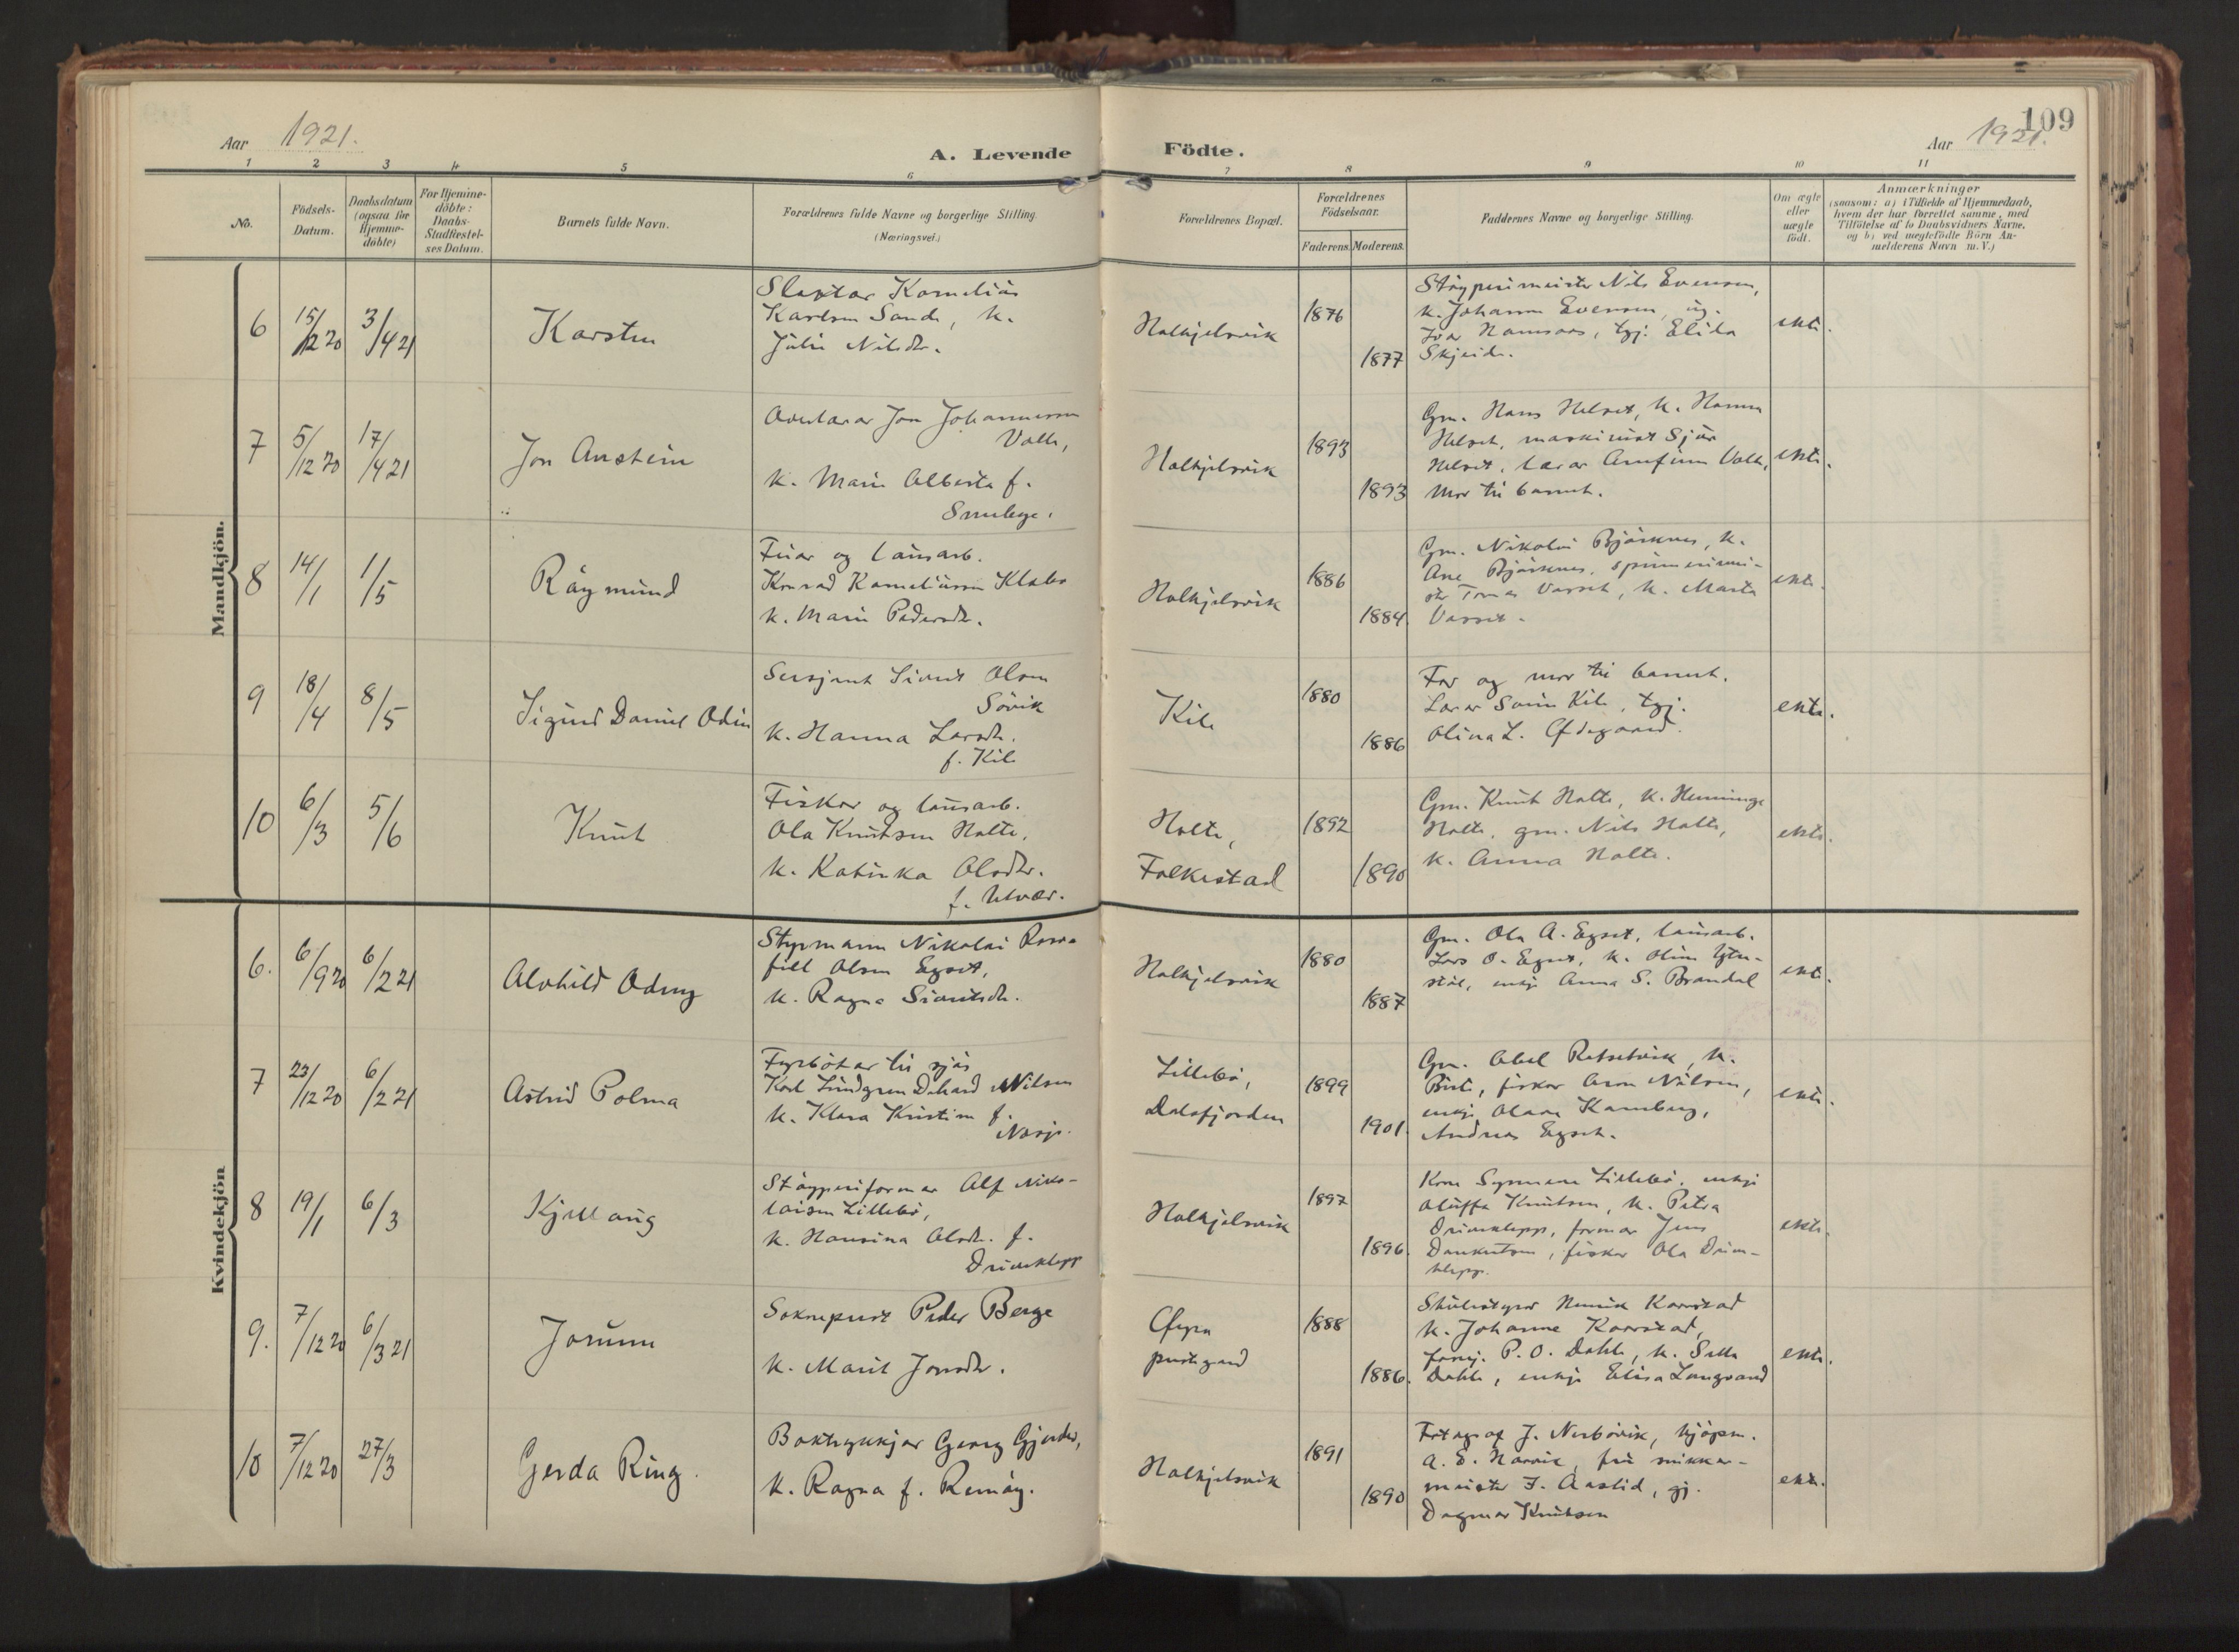 Aar 1921.
A. Levende
Födte.
Aar 1921.
109
1 2 3 4 5 6 7 8 9 10 11
No.
Födsels-
Datum.
Daabsdatum
(ogsaa for
Hjemme-
döbte)
For Hjemme-
döbte:
Daabs-
Stadfæstel-
ses Datum.
Barnets fulde Navn.
Forældrenes fulde Navne og borgerlige Stilling
(Næringsvei.)
Forældrenes Bopæl.
Forældrenes
Födselsaar.
Faderens. Moderens.
Faddernes Navne og borgerlige Stilling.
Om ægte
eller
uægte
födt.
Anmærkninger
(saasom: a) i Tilfælde af Hjemmedaab,
hvem der har forrettet samme, med
Tilföielse af to Daabsvidners Navne.
og b) ved uægtefödte Börn An-
melderens Navn m. V.)
Mandkjön.
6
15/12 20
3/4 21
Karsten
Slaktar Kornelius
Karlsen Sande, k.
Julie Nilsdr.
Halkjelsvik
1876
1877
Støyperimeister Nils Evensen,
k. Johanne Evensen, ug.
Ivar Hamsaas, tgj. Elida
Skjeide.
ekte.
7
5/12 20
17/4 21
Jon Anstein
Jon Johannessen
Valle,
k. Marie Alberta f.
Halkjelsvik
1893
1893
Gm. Hans Helset, k. Hanna
Helset, maskinist Sjur
Helset, lærar Arnfinn Valle,
Mor til barnet.
ekte.
8
14/1
1/5
Råymund
Fiskar og lausarb.
Konrad Korneliussen Klabo
k. Marie Pedersdr.
Halkjelsvik
1886
1884.
Gm. Nikolai Bjørknes, k.
Ane Bjørknes, spinnerimei-
ster Tomas Vasset, k. Marta
Vasset.
ekte.
9
18/4
8/5
Sigurd Daniel Odin
Sersjant Sivert Olsen
Søvik
k. Hanna Larsdr.
f. Kile
Kile
1880
1886
Far og mor til barnet.
Lærar Søren Kile, tgj.
Olina L. Ødegaard.
ekte.
10
6/3
5/6
Knut
Fiskar og lausarb.
Ola Knutsen Holte,
k. Katinka Olsdr.
f. Utvær.
Holte,
Folkestad
1892
1890
Gm. Knut Holte, k. Henninge
Holte, gm. Nils Holte,
k. Anna Holte.
ekte.
Kvindekjön
6.
6/9 20
6/2 21
Alvhild Odny
Styrmann Nikolai Rosen-
fill Olsen Egset,
k. Ragna Sivertsdr.
Halkjelsvik
1880
1887
Gm. Ola A. Egset, lausarb.
Lars O. Egset, k. Oline
enkje Anna S. Brandal
ekte.
7
23/12 20
6/2 21
Astrid Polma
Fyrbøtar til sjøs
Karl Lindgren Nilsen
k. Klara Kristine f.
Lillebø,
Dalsfjorden
1899
1901.
Gm. Abel Rotsetvik, k.
Birte, fiskar Aron Nilsen,
enkje Olave Kamberg,
Andreas Egset.
ekte.
8
19/1
6/3
Kjellaug
Støyperiformar Alf Niko-
laisen Lillebø,
k. Hansina Olsdr. f.
Driveklepp
Halkjelsvik
1897
1896.
Kone Synneve Lillebø, enkje
Oluffa Knutsen, k. Petra
Driveklepp, formar Jens
fiskar Ola Drive-
klepp.
ekte.
9.
7/12 20
6/3 21
Jorunn
Sokneprest Peder Berge
k. Marit Jonsdr.
Øyra
prestegard
1888
1886.
Skulestyrar Henrik Kaarstad
k. Johanne Kaarstad,
P. O. Dahle, k. Sella
Dahle, enkje Elisa Langvand
ekte.
10
7/12 20
27/3
Gerda Ring.
Boktrykkjar Georg Gjerder,
k. Ragna f. Remøy.
Halkjelsvik
1891
1890
Fotograf J. Nerbøvik, kjøpm.
A. E. Norvik, fru snikkar-
meister I. Aaslid, gj.
Dagmar Knutsen
ekte.